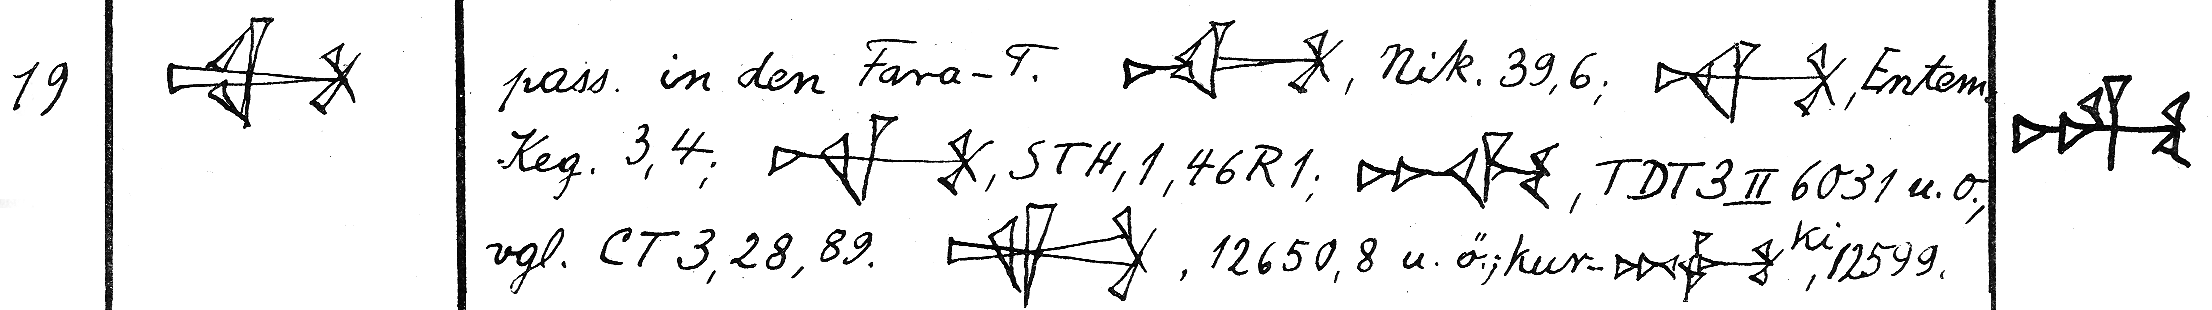 19 pass. in den Fara-T. , Nik. 39,6; , Entem.
Keg. 3,4; , STH, 1, 46R1; , TDT3 II 6031 u. o.,
vgl. CT 3, 28, 89. , 12650, 8 u. ö.; kur- ki, 12599.